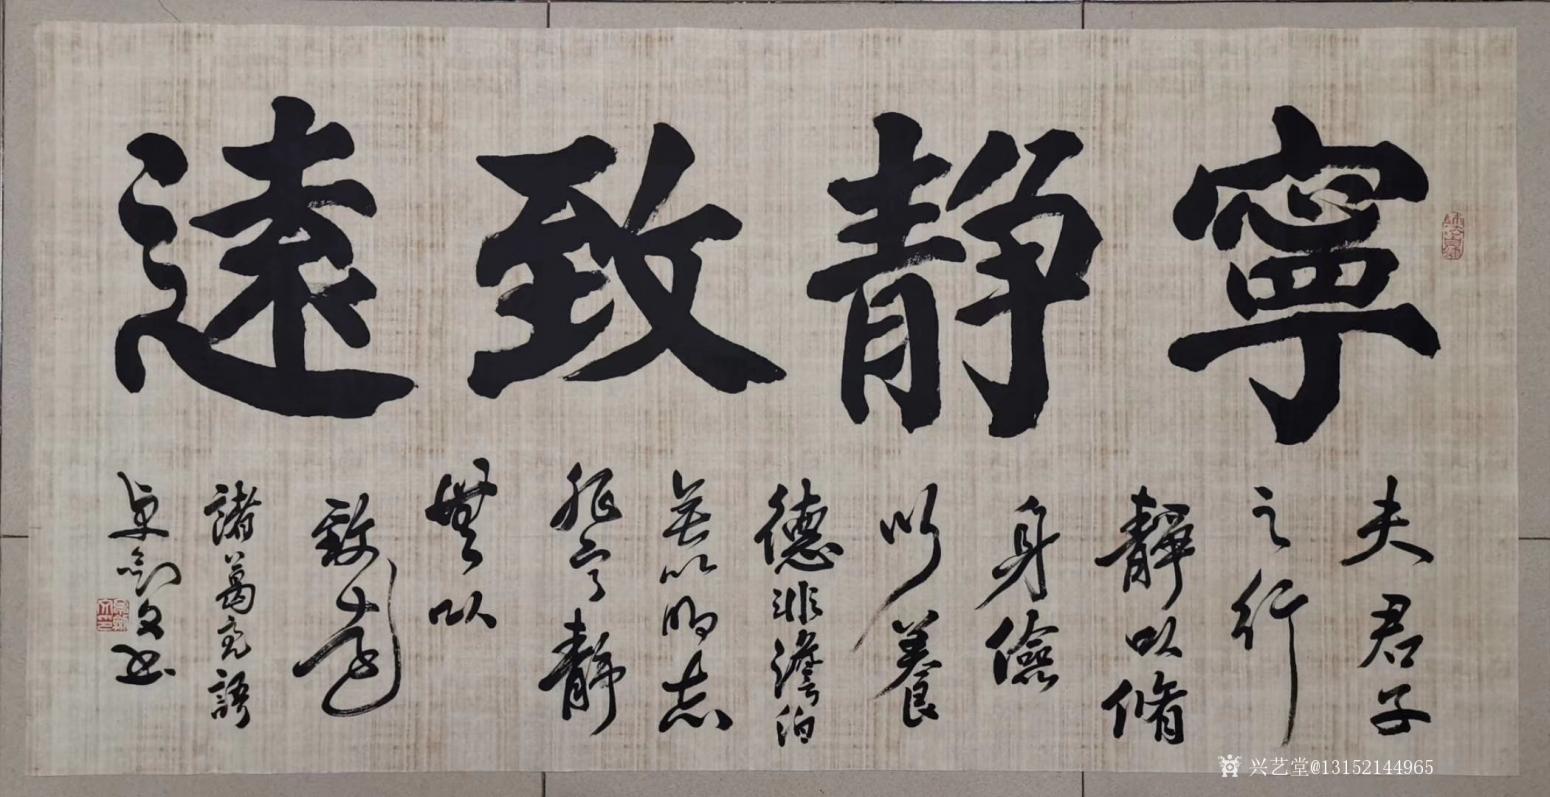 寧靜致遠
夫君子
之行
靜以脩
身儉
以養
德非澹泊
無以明志
非寧靜
無以
致遠
諸葛亮語
卓劍文書
兴艺堂@13152144965